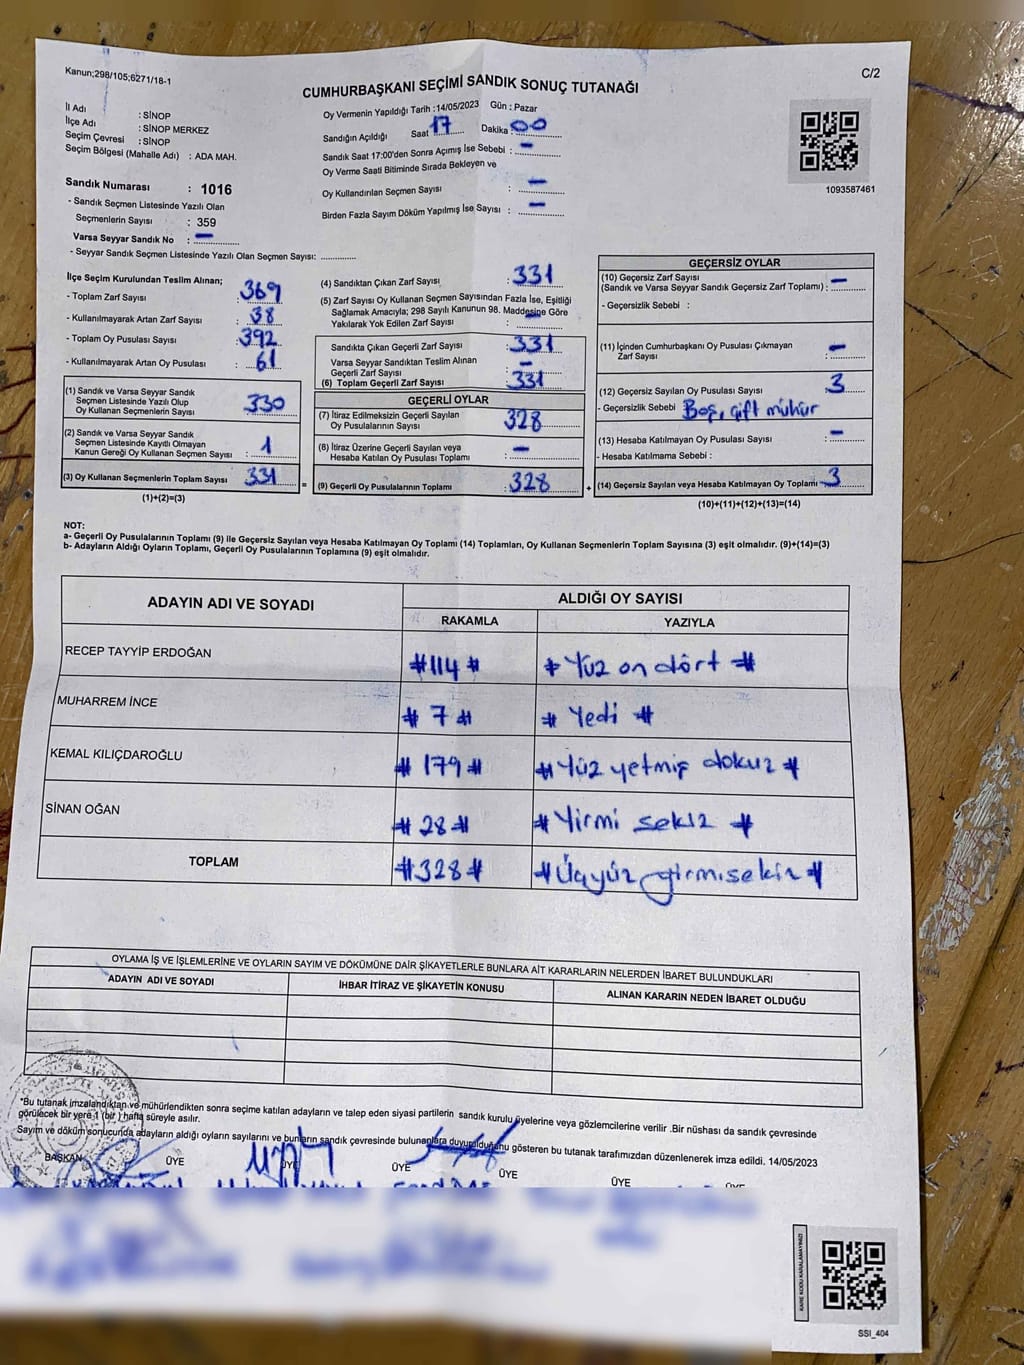 Kanun;298/105;6271/18-1
C/2
CUMHURBAŞKANI SEÇİMİ SANDIK SONUÇ TUTANAĞI
İl Adı : SİNOP
İlçe Adı : SİNOP MERKEZ
Seçim Çevresi : SİNOP
Seçim Bölgesi (Mahalle Adı) : ADA MAH.
Sandık Numarası : 1016
- Sandık Seçmen Listesinde Yazılı Olan
Seçmenlerin Sayısı : 359
Varsa Seyyar Sandık No : —
- Seyyar Sandık Seçmen Listesinde Yazılı Olan Seçmen Sayısı: ..............
Oy Vermenin Yapıldığı Tarih :14/05/2023 Gün : Pazar
Sandığın Açıldığı Saat 17 Dakika : 00
Sandık Saat 17:00'den Sonra Açımış İse Sebebi : —
Oy Verme Saati Bitiminde Sırada Bekleyen ve
Oy Kullandırılan Seçmen Sayısı : —
Birden Fazla Sayım Döküm Yapılmış İse Sayısı : —
1093587461
İlçe Seçim Kurulundan Teslim Alınan;
- Toplam Zarf Sayısı : 369
- Kullanılmayarak Artan Zarf Sayısı : 38
- Toplam Oy Pusulası Sayısı : 392
- Kullanılmayarak Artan Oy Pusulası : 61
(1) Sandık ve Varsa Seyyar Sandık
Seçmen Listesinde Yazılı Olup
Oy Kullanan Seçmenlerin Sayısı : 330
(2) Sandık ve Varsa Seyyar Sandık
Seçmen Listesinde Kayıtlı Olmayan
Kanun Gereği Oy Kullanan Seçmen Sayısı : 1
(3) Oy Kullanan Seçmenlerin Toplam Sayısı : 331
(1)+(2)=(3)
(4) Sandıktan Çıkan Zarf Sayısı : 331
(5) Zarf Sayısı Oy Kullanan Seçmen Sayısından Fazla İse, Eşitliği
Sağlamak Amacıyla; 298 Sayılı Kanunun 98. Maddesine Göre
Yakılarak Yok Edilen Zarf Sayısı : —
Sandıkta Çıkan Geçerli Zarf Sayısı : 331
Varsa Seyyar Sandıktan Teslim Alınan
Geçerli Zarf Sayısı : —
(6) Toplam Geçerli Zarf Sayısı : 331
GEÇERLİ OYLAR
(7) İtiraz Edilmeksizin Geçerli Sayılan
Oy Pusulalarının Sayısı : 328
(8) İtiraz Üzerine Geçerli Sayılan veya
Hesaba Katılan Oy Pusulası Toplamı : —
= (9) Geçerli Oy Pusulalarının Toplamı : 328
GEÇERSİZ OYLAR
(10) Geçersiz Zarf Sayısı
(Sandık ve Varsa Seyyar Sandık Geçersiz Zarf Toplamı) : —
- Geçersizlik Sebebi :
(11) İçinden Cumhurbaşkanı Oy Pusulası Çıkmayan
Zarf Sayısı : —
(12) Geçersiz Sayılan Oy Pusulası Sayısı : 3
- Geçersizlik Sebebi Boş, çift mühür
(13) Hesaba Katılmayan Oy Pusulası Sayısı : —
- Hesaba Katılmama Sebebi :
+ (14) Geçersiz Sayılan veya Hesaba Katılmayan Oy Toplamı : 3
(10)+(11)+(12)+(13)=(14)
NOT:
a- Geçerli Oy Pusulalarının Toplamı (9) ile Geçersiz Sayılan veya Hesaba Katılmayan Oy Toplamı (14) Toplamları, Oy Kullanan Seçmenlerin Toplam Sayısına (3) eşit olmalıdır. (9)+(14)=(3)
b- Adayların Aldığı Oyların Toplamı, Geçerli Oy Pusulalarının Toplamına (9) eşit olmalıdır.
ADAYIN ADI VE SOYADI ALDIĞI OY SAYISI
RAKAMLA YAZIYLA
RECEP TAYYİP ERDOĞAN #114# # Yüz on dört #
MUHARREM İNCE # 7 # # Yedi #
KEMAL KILIÇDAROĞLU # 179 # # Yüz yetmiş dokuz #
SİNAN OĞAN # 28 # # Yirmi sekiz #
TOPLAM #328# # Üçyüz yirmisekiz #
OYLAMA İŞ VE İŞLEMLERİNE VE OYLARIN SAYIM VE DÖKÜMÜNE DAİR ŞİKAYETLERLE BUNLARA AİT KARARLARIN NELERDEN İBARET BULUNDUKLARI
ADAYIN ADI VE SOYADI İHBAR İTİRAZ VE ŞİKAYETİN KONUSU ALINAN KARARIN NEDEN İBARET OLDUĞU
*Bu tutanak imzalandıktan ve mühürlendikten sonra seçime katılan adayların ve talep eden siyasi partilerin sandık kurulu üyelerine veya gözlemcilerine verilir .Bir nüshası da sandık çevresinde
görülecek bir yere 1 (bir ) hafta süreyle asılır.
Sayım ve döküm sonucunda adayların aldığı oyların sayılarını ve bunların sandık çevresinde bulunanlara duyurulduğunu gösteren bu tutanak tarafımızdan düzenlenerek imza edildi. 14/05/2023
BAŞKAN ÜYE ÜYE ÜYE ÜYE ÜYE ÜYE
KARE KODU KARALAMAYINIZ!
SSI_404